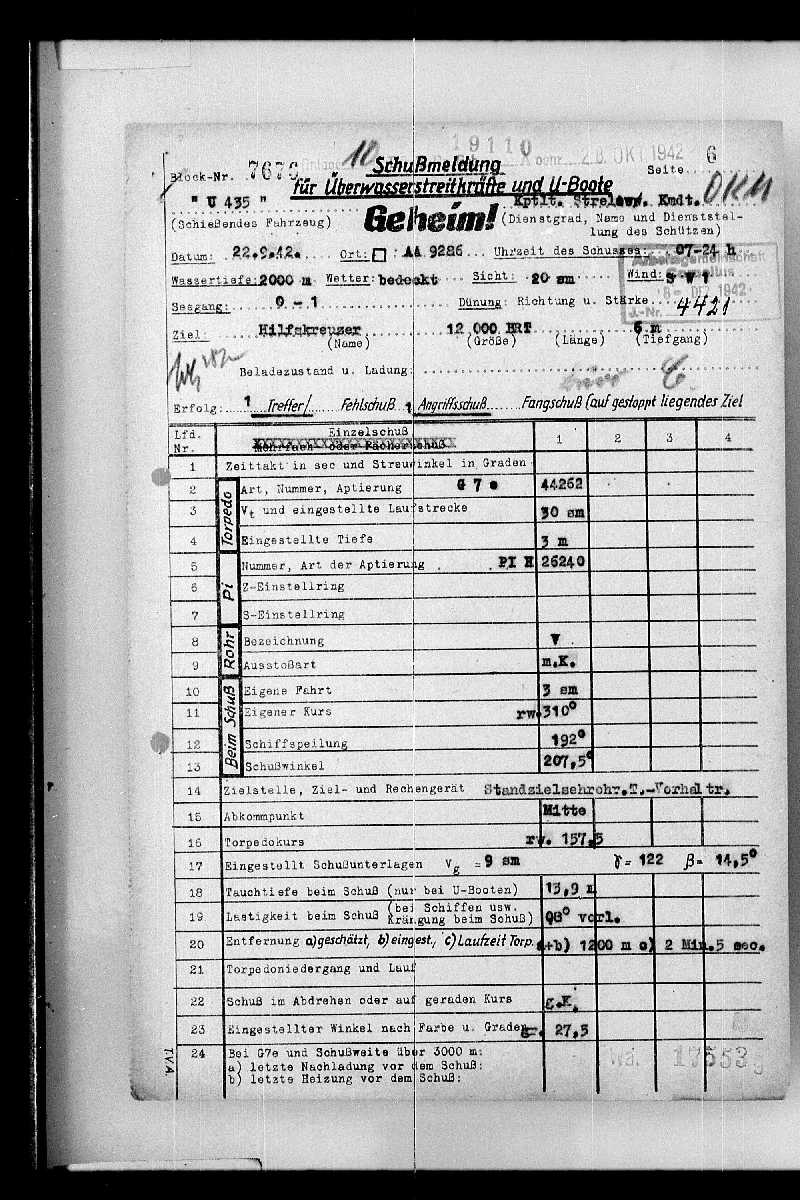 19110
10
28. OKT 1942
Block-Nr. 7676 Schußmeldung Seite 6
für Überwasserstreitkräfte und U-Boote
" U 435 " Kptlt. Strelow. Kmdt. OKM
(Schießendes Fahrzeug) Geheim! (Dienstgrad, Name und Dienststel-
lung des Schützen)
Datum: 22.9.42. Ort: □ AA 9286 Uhrzeit des Schusses: 07-24 h
Wassertiefe: 2000 m Wetter: bedeckt Sicht: 20 sm Wind: S W 1
Arbeitsgemeinschaft
DEZ 1942
J.-Nr. 4421
Seegang: 0 - 1 Dünung: Richtung u. Stärke
Ziel: Hilfskreuzer 12 000 BRT 6 m
(Name) (Größe) (Länge) (Tiefgang)
Beladezustand u. Ladung:
Erfolg: 1 Treffer/ Fehlschuß 1 Angriffsschuß Fangschuß (auf gestoppt liegendes Ziel
Lfd. Nr. Einzelschuß 1 2 3 4
Mehrfach- oder Fächerschuß
1 Zeittakt in sec und Streuwinkel in Graden
Torpedo
2 Art, Nummer, Aptierung G 7 e 44262
3 Vt und eingestellte Laufstrecke 30 sm
4 Eingestellte Tiefe 3 m
Pi
5 Nummer, Art der Aptierung PI H 26240
6 Z-Einstellring
7 S-Einstellring
Rohr
8 Bezeichnung V
9 Ausstoßart m.K.
Beim Schuß
10 Eigene Fahrt 3 sm
11 Eigener Kurs rw. 310°
12 Schiffspeilung 192°
13 Schußwinkel 207,5°
14 Zielstelle, Ziel- und Rechengerät Standzielsehrohr.T.-Vorhaltr.
15 Abkommpunkt Mitte
16 Torpedokurs rw. 157,5
17 Eingestellt Schußunterlagen Vg = 9 sm γ= 122 β= 14,5°
18 Tauchtiefe beim Schuß (nur bei U-Booten) 13,9 m
19 Lastigkeit beim Schuß (bei Schiffen usw. Krängung beim Schuß) 00° vorl.
20 Entfernung a) geschätzt, b) eingest., c) Laufzeit Torp. a+b) 1200 m c) 2 Min.5 sec.
21 Torpedoniedergang und Lauf
22 Schuß im Abdrehen oder auf geraden Kurs g.K.
23 Eingestellter Winkel nach Farbe u. Graden gr. 27,5
24 Bei G7e und Schußweite über 3000 m:
a) letzte Nachladung vor dem Schuß:
b) letzte Heizung vor dem Schuß:
17553
T.V.A.